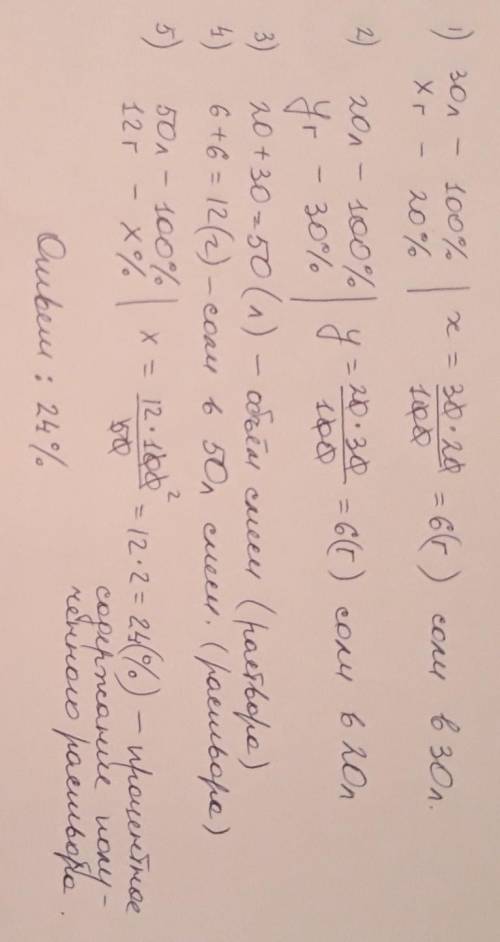 1) 30л – 100% | x = 30·20/100 = 6(г) соли в 30л.
xг – 20%
2) 20л – 100% | y = 20·30/100 = 6(г) соли в 20л
yг – 30%
3) 20 + 30 = 50 (л) – объём смеси (раствора)
4) 6 + 6 = 12(г) – соли в 50л смеси. (раствора)
5) 50л – 100% | x = 12·100/50 2 = 12·2 = 24(%) – процентное
12г – x%
содержание полу-
ченного раствора.
Ответ: 24%